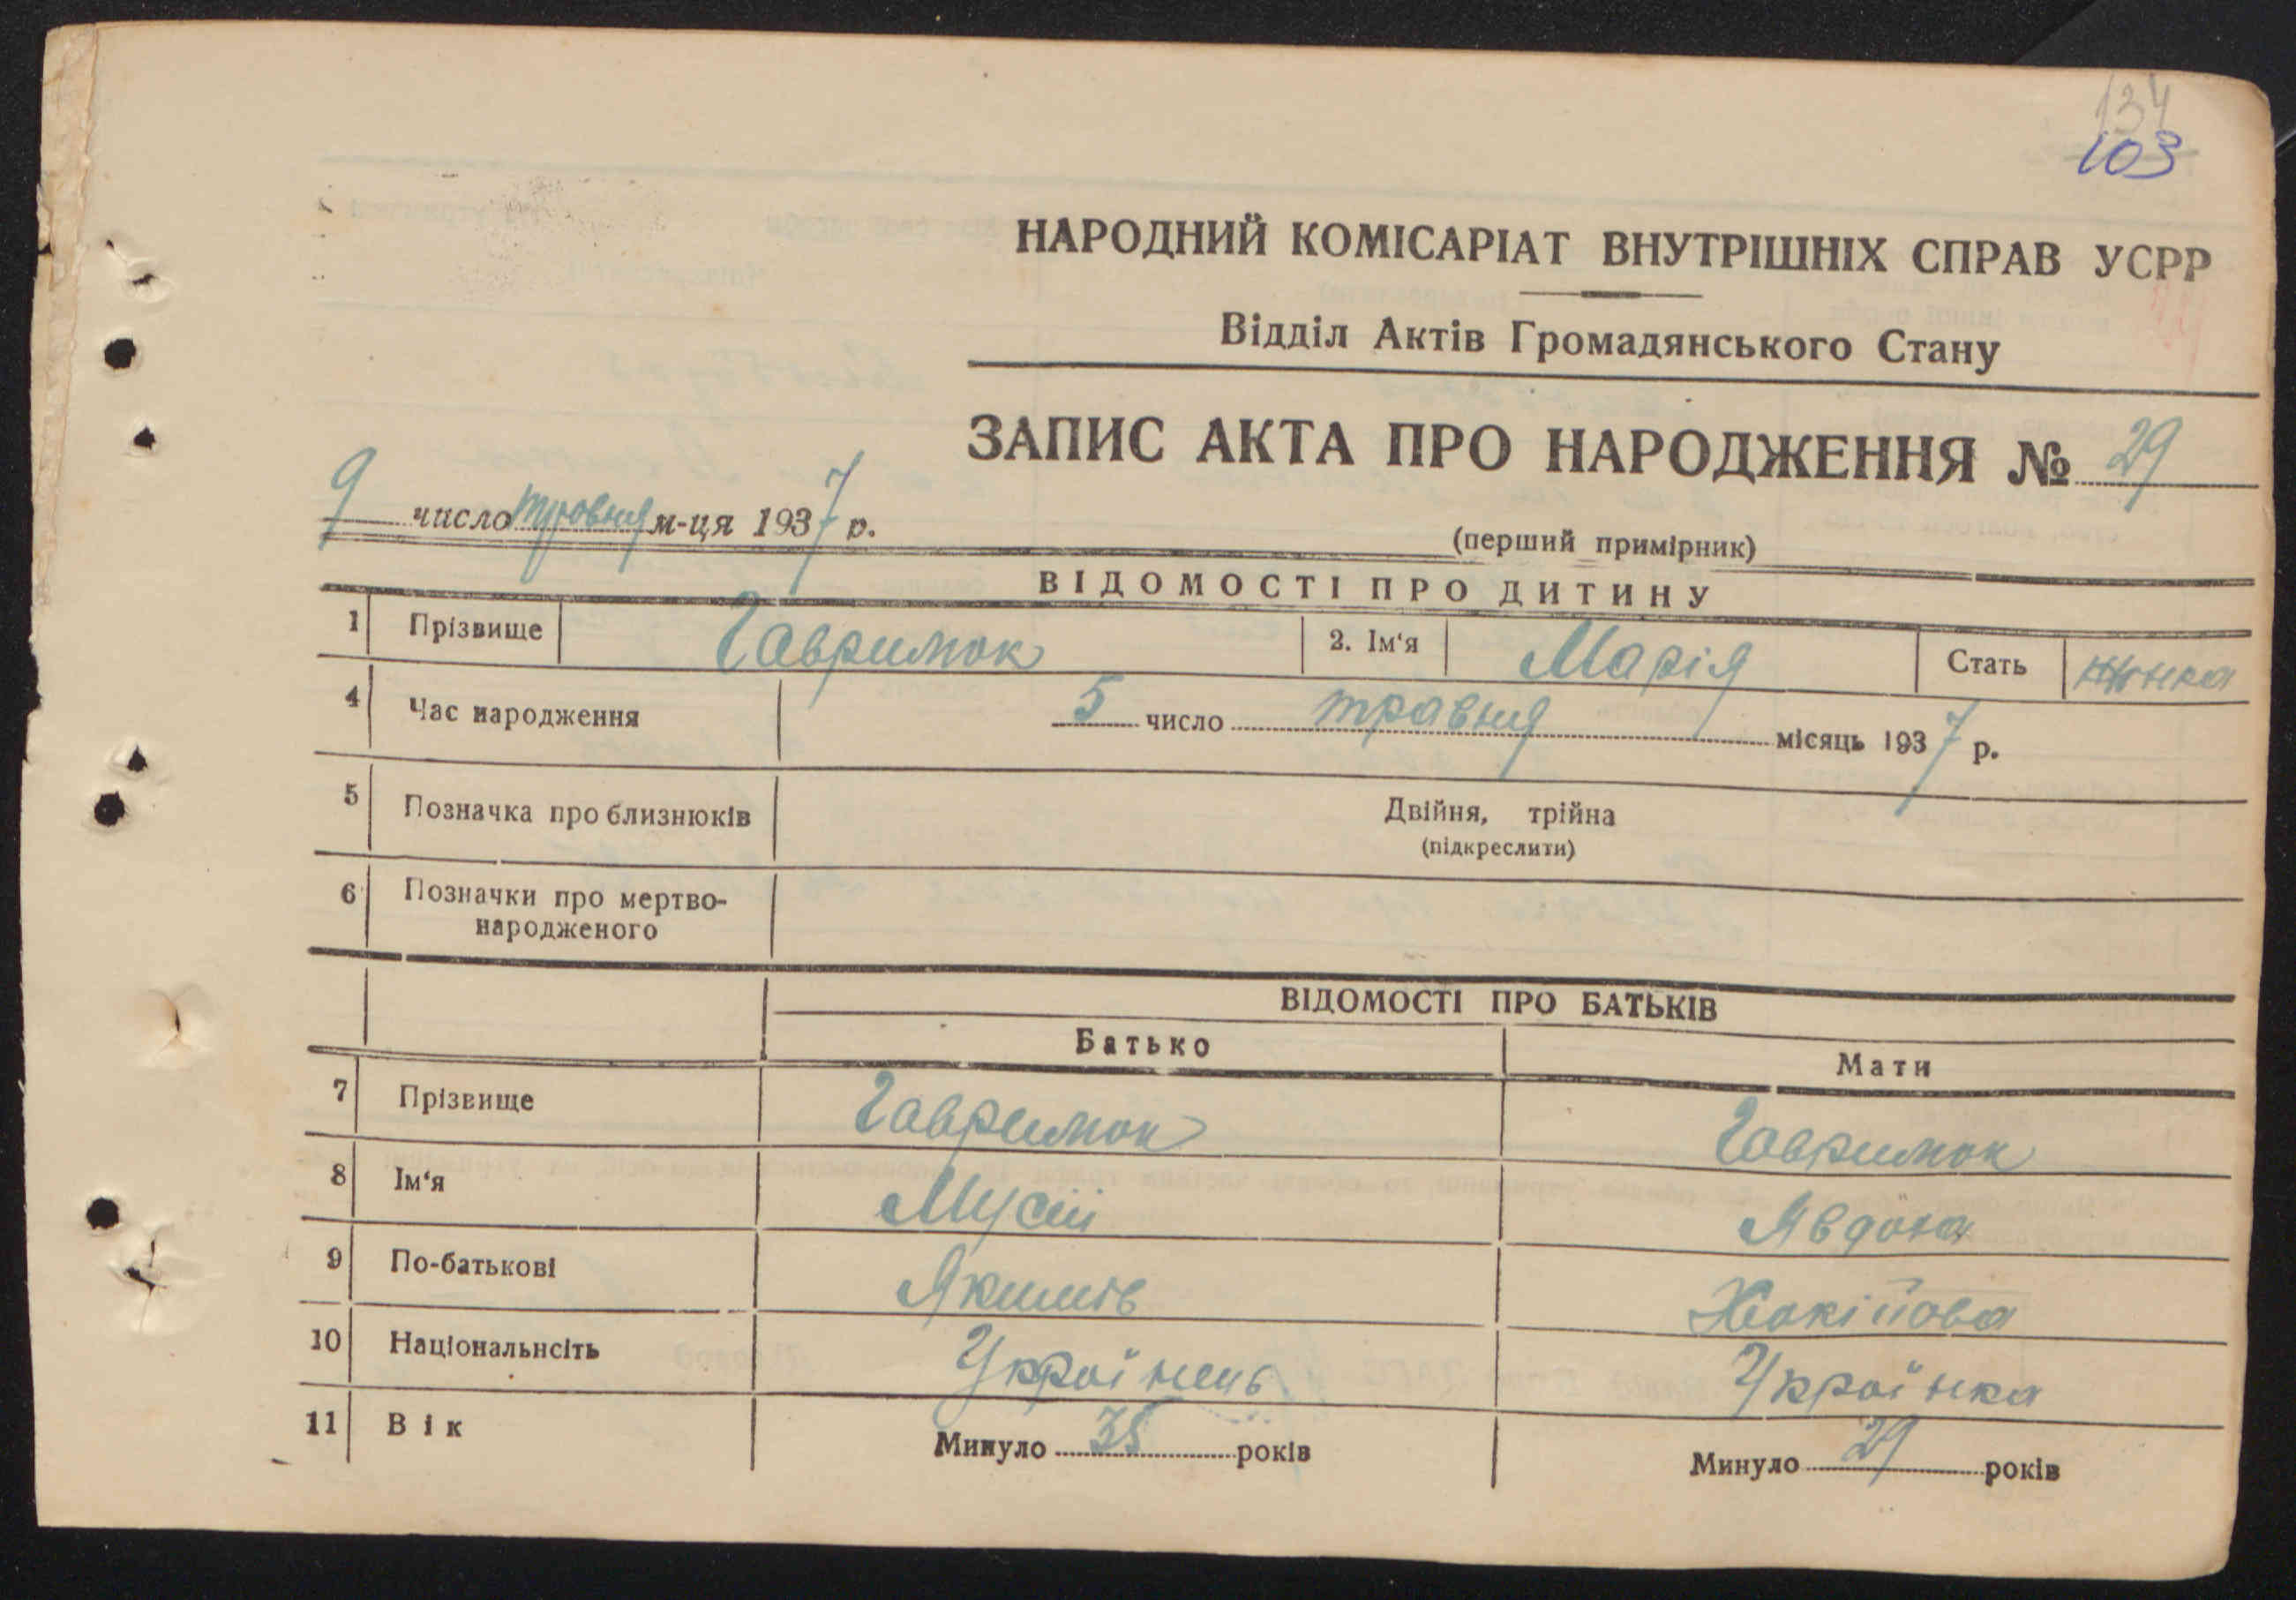 134
103
НАРОДНИЙ КОМІСАРІАТ ВНУТРІШНІХ СПРАВ УСРР
Відділ Актів Громадянського Стану
ЗАПИС АКТА ПРО НАРОДЖЕННЯ № 29
9 число травня м-ця 1937 р.
(перший примірник)
ВІДОМОСТІ ПРО ДИТИНУ
1 Прізвище Гаврилюк 2. Ім‘я Марія Стать жінка
4 Час народження 5 число травня місяць 1937 р.
5 Позначка про близнюків Двійня, трійна
(підкреслити)
6 Позначки про мертво-
народженого
ВІДОМОСТІ ПРО БАТЬКІВ
Батько Мати
7 Прізвище Гаврилюк Гаврилюк
8 Ім‘я Мусій Явдоха
9 По-батькові Якимів
10 Національнсіть Українець Українка
11 Вік Минуло 35 років Минуло 29 років